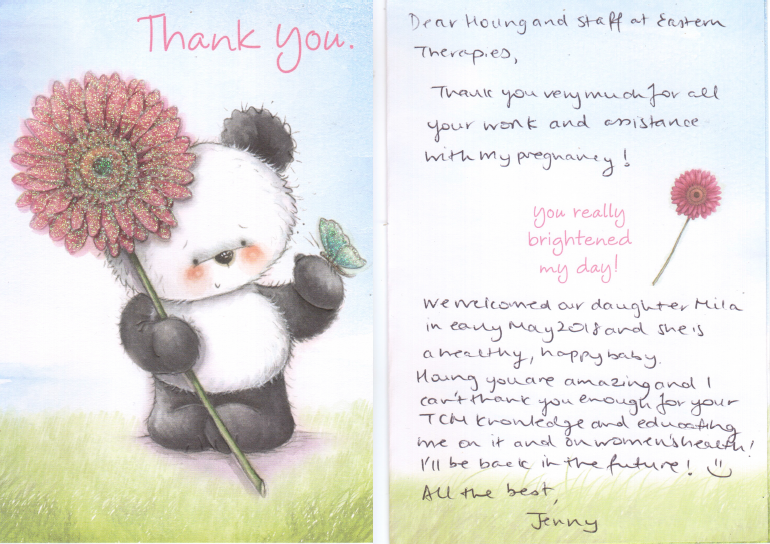 Thank You.
Dear Houng and staff at Eastern
Therapies,
Thank you very much for all
your work and assistance
with my pregnancy!
you really
brightened
my day!
We welcomed our daughter Mila
in early May 2018 and she is
a healthy, happy baby.
Houng you are amazing and I
can't thank you enough for your
TCM knowledge and educating
me on it and on women's health!
I'll be back in the future!
All the best,
Jenny